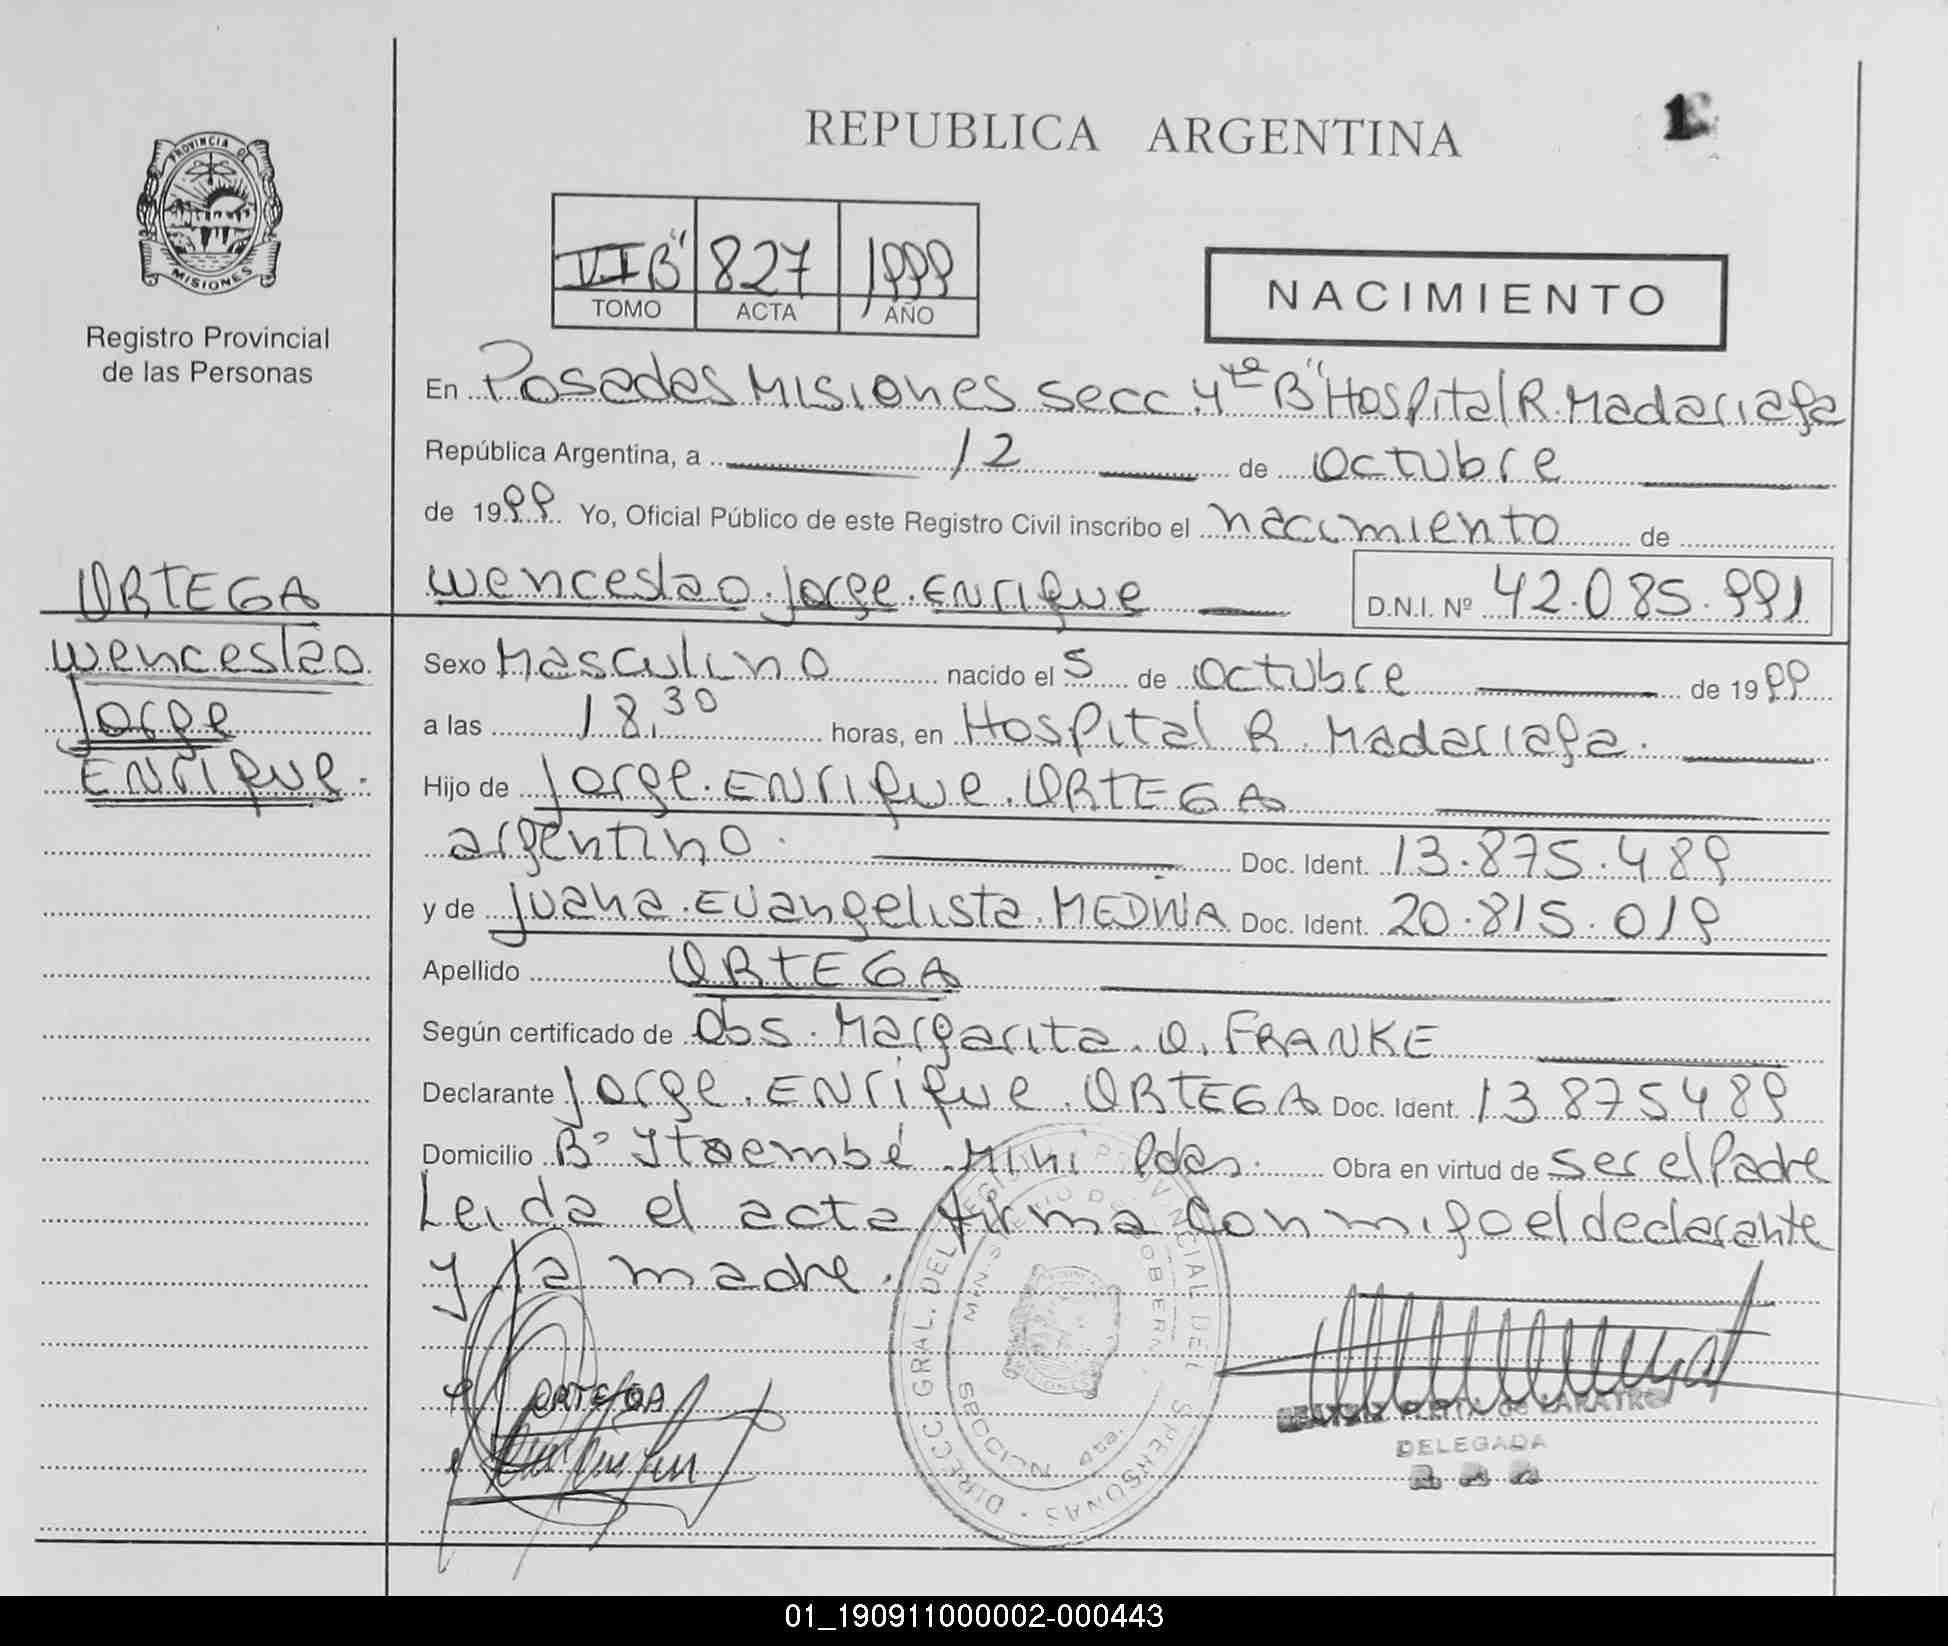 REPUBLICA ARGENTINA
PROVINCIA DE
MISIONES
Registro Provincial
de las Personas
VI B" 827 1999
TOMO ACTA AÑO
NACIMIENTO
En Posadas Misiones secc. 4ta "B" Hospital R. Madariaga
República Argentina, a 12 de octubre
de 1999 Yo, Oficial Público de este Registro Civil inscribo el nacimiento de
Wenceslao. Jorge. ENrique D.N.I. Nº 42.085.991
ORTEGA
Wenceslao
Jorge
ENrique.
Sexo Masculino nacido el 5 de octubre de 1999
a las 18,30 horas, en Hospital R. Madariaga.
Hijo de Jorge. ENrique. ORTEGA
argentino. Doc. Ident. 13.875.489
y de Juana. Evangelista. MEDINA Doc. Ident. 20.815.019
Apellido ORTEGA
Según certificado de Obs. Margarita. O. FRANKE
Declarante Jorge. ENrique. ORTEGA Doc. Ident. 13875489
Domicilio Bº Itaembé Mini Pdas. Obra en virtud de ser el Padre
Leida el acta firma conmigo el declarante
y la madre.
DIRECC. GRAL. DEL REGISTRO PROVINCIAL DE LAS PERSONAS
SECCION 4ta.
ORTEGA
DELEGADA
01_190911000002-000443